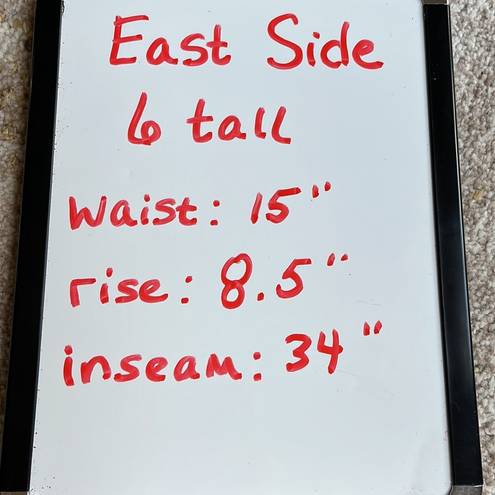 East Side
6 tall
Waist: 15"
rise: 8.5"
inseam: 34"